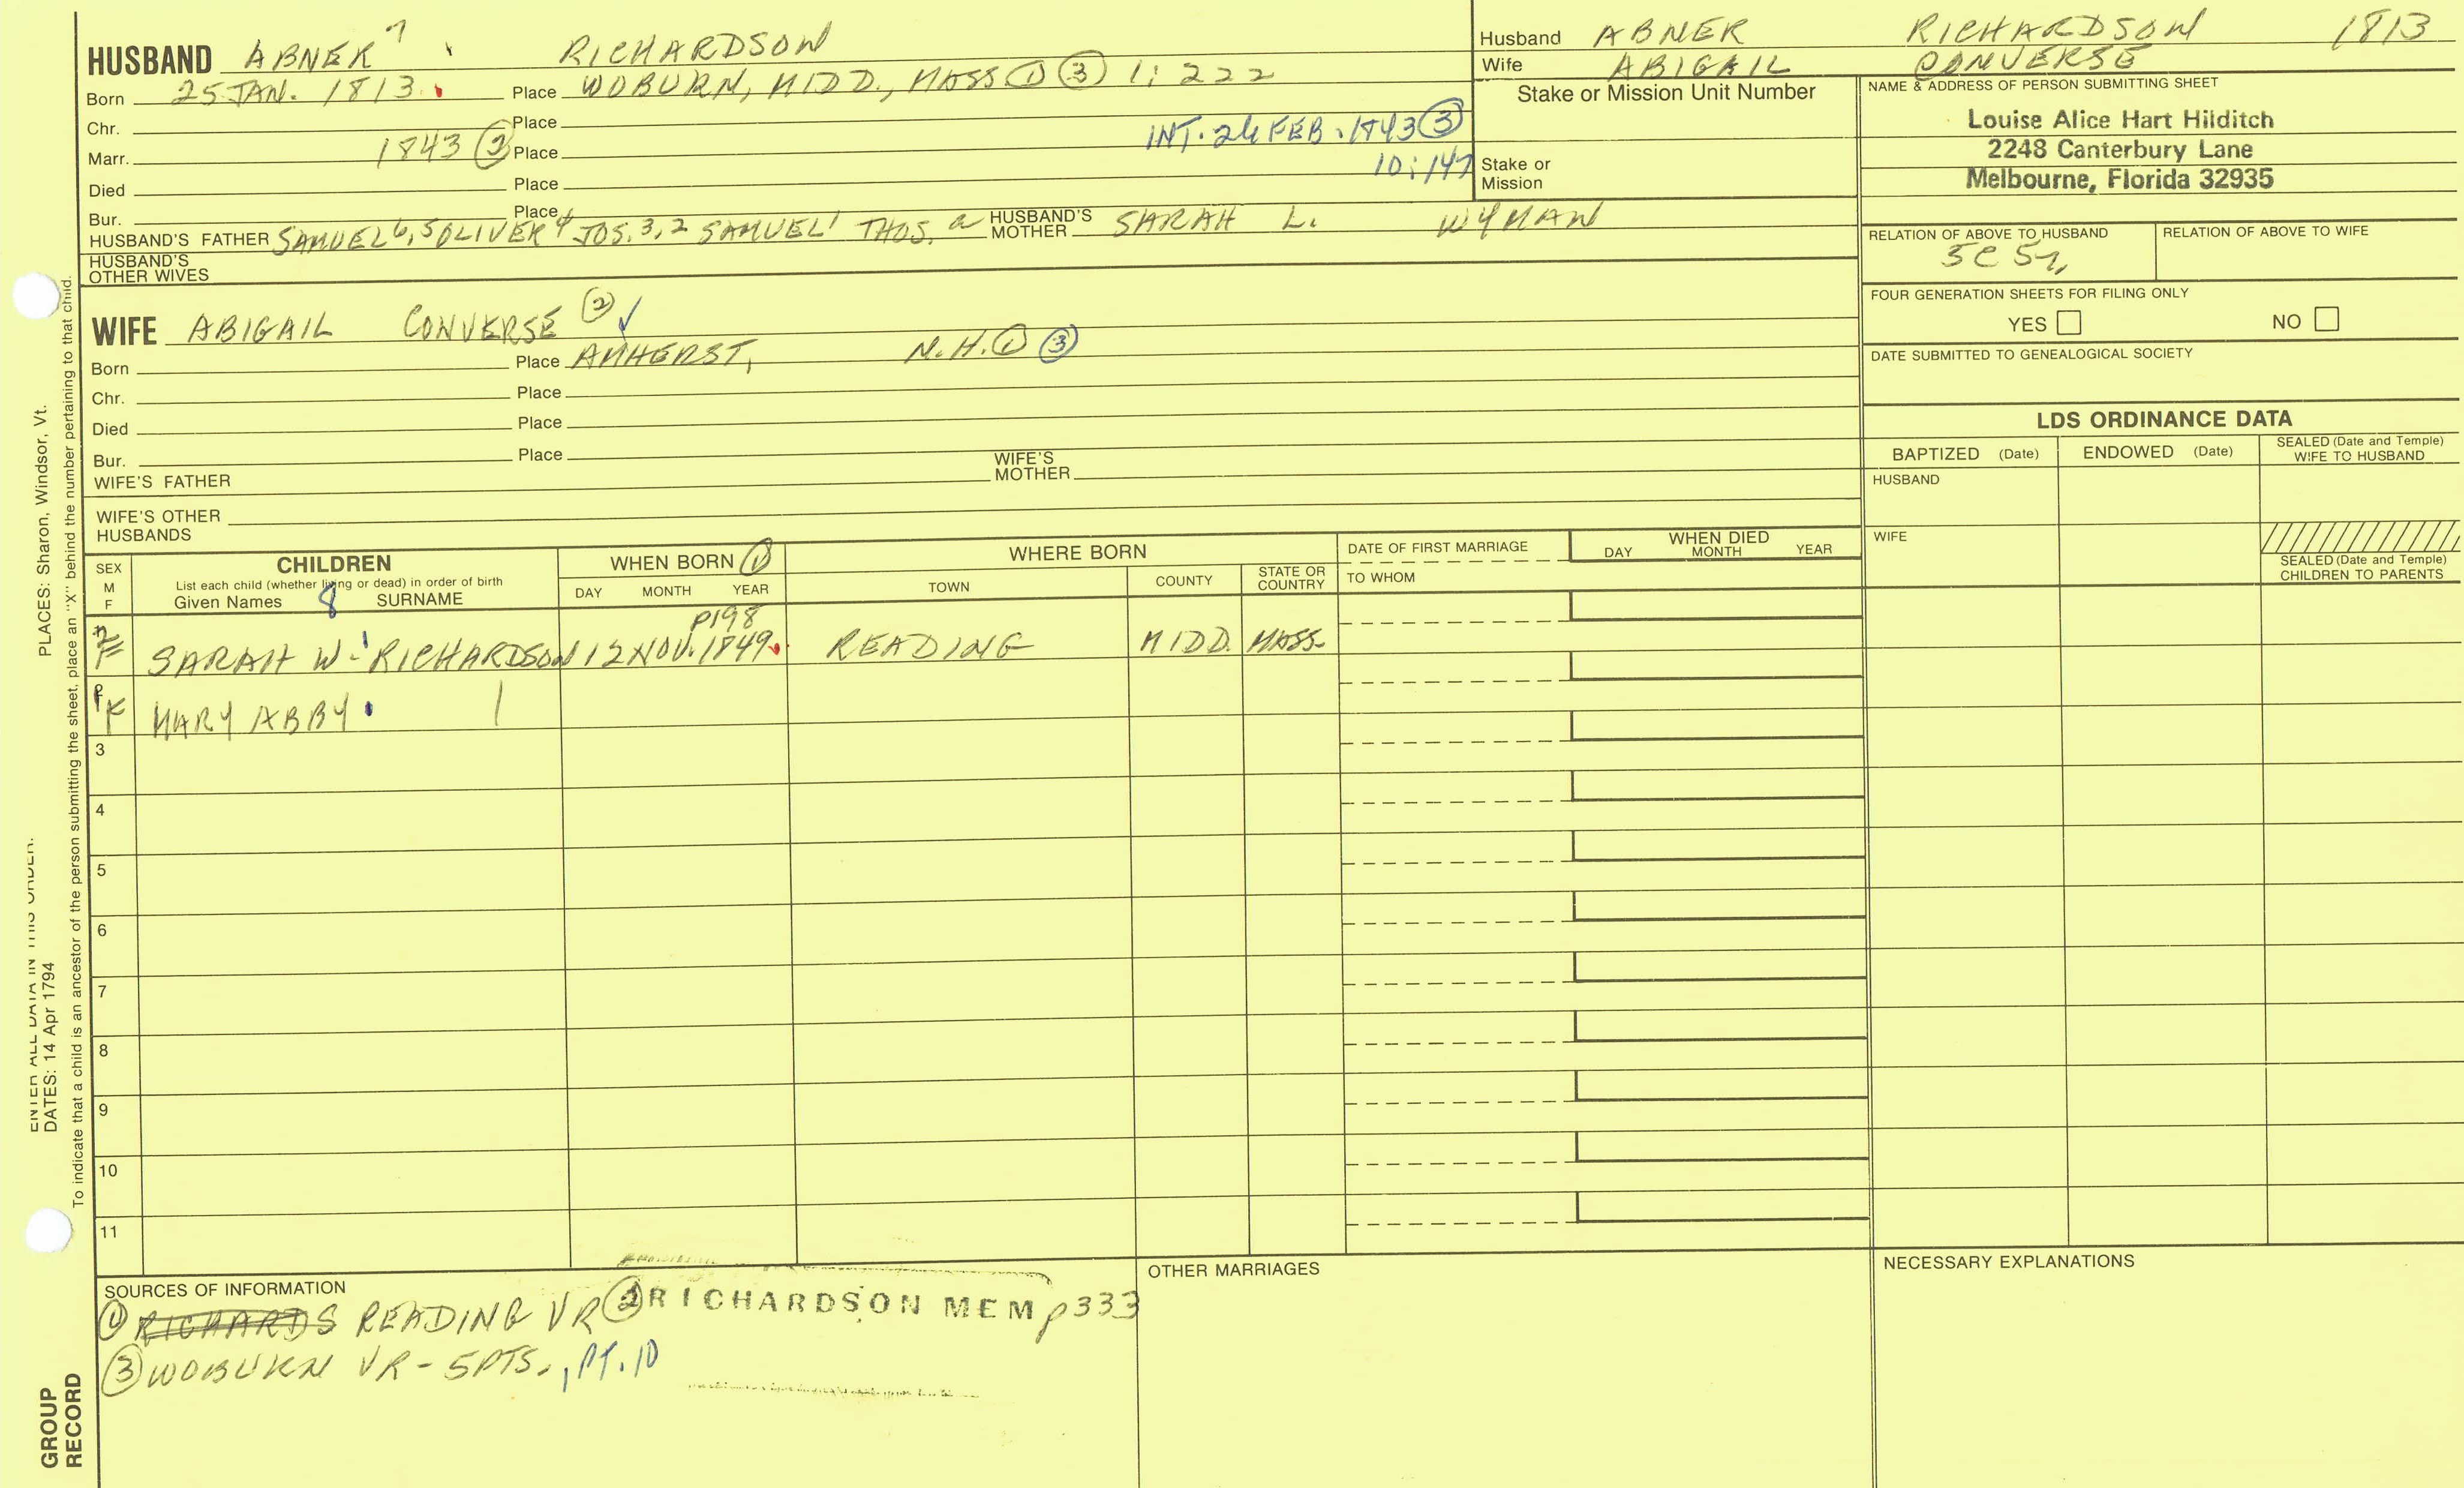 HUSBAND ABNER 7 RICHARDSON
Born 25 JAN. 1813. Place WOBURN, MIDD., MASS ① ③ 1; 222
Chr. Place
Marr. 1843 ② Place INT. 24 FEB. 1843 ③
Died Place 10; 147
Bur. Place
HUSBAND'S FATHER SAMUEL 6, 5 OLIVER 4 JOS. 3, 2 SAMUEL 1 THOS. a HUSBAND'S MOTHER SARAH L. WYMAN
HUSBAND'S OTHER WIVES
WIFE ABIGAIL CONVERSE ② ✓
Born Place AMHERST, N.H. ① ③
Chr. Place
Died Place
Bur. Place
WIFE'S FATHER WIFE'S MOTHER
WIFE'S OTHER HUSBANDS
Husband ABNER RICHARDSON 1813
Wife ABIGAIL CONVERSE
Stake or Mission Unit Number
Stake or Mission
NAME & ADDRESS OF PERSON SUBMITTING SHEET
Louise Alice Hart Hilditch
2248 Canterbury Lane
Melbourne, Florida 32935
RELATION OF ABOVE TO HUSBAND RELATION OF ABOVE TO WIFE
5C 5r,
FOUR GENERATION SHEETS FOR FILING ONLY
YES NO
DATE SUBMITTED TO GENEALOGICAL SOCIETY
LDS ORDINANCE DATA
BAPTIZED (Date) ENDOWED (Date) SEALED (Date and Temple) WIFE TO HUSBAND
HUSBAND
WIFE
SEALED (Date and Temple) CHILDREN TO PARENTS
SEX M F
CHILDREN
List each child (whether living or dead) in order of birth
Given Names 8 SURNAME
WHEN BORN ①
DAY MONTH YEAR
WHERE BORN
TOWN COUNTY STATE OR COUNTRY
DATE OF FIRST MARRIAGE
TO WHOM
WHEN DIED
DAY MONTH YEAR
P198
F SARAH W. RICHARDSON 12 NOV. 1849. READING MIDD. MASS.
F MARY ABBY
3
4
5
6
7
8
9
10
11
SOURCES OF INFORMATION
① RICHARDS READING VR ② RICHARDSON MEM p333
③ WOBURN VR - 5PTS., PT. 10
OTHER MARRIAGES
NECESSARY EXPLANATIONS
ENTER ALL DATA IN THIS ORDER.
DATES: 14 Apr 1794 PLACES: Sharon, Windsor, Vt.
To indicate that a child is an ancestor of the person submitting the sheet, place an "X" behind the number pertaining to that child.
GROUP
RECORD